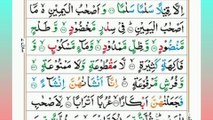 اِلَّا قِيْلًا سَلٰمًا سَلٰمًا ۝ وَ اَصْحٰبُ الْيَمِيْنِ ۙ مَاۤ
اَصْحٰبُ الْيَمِيْنِ ۝ فِيْ سِدْرٍ مَّخْضُوْدٍ ۝ وَّ طَلْحٍ
مَّنْضُوْدٍ ۝ وَّ ظِلٍّ مَّمْدُوْدٍ ۝ وَّ مَآءٍ مَّسْكُوْبٍ ۝ وَّ
فَاكِهَةٍ كَثِيْرَةٍ ۝ لَّا مَقْطُوْعَةٍ وَّ لَا مَمْنُوْعَةٍ ۝
وَّ فُرُشٍ مَّرْفُوْعَةٍ ۝ اِنَّاۤ اَنْشَاْنٰهُنَّ اِنْشَآءً ۝
فَجَعَلْنٰهُنَّ اَبْكَارًا ۝ عُرُبًا اَتْرَابًا ۝ لِّاَصْحٰبِ